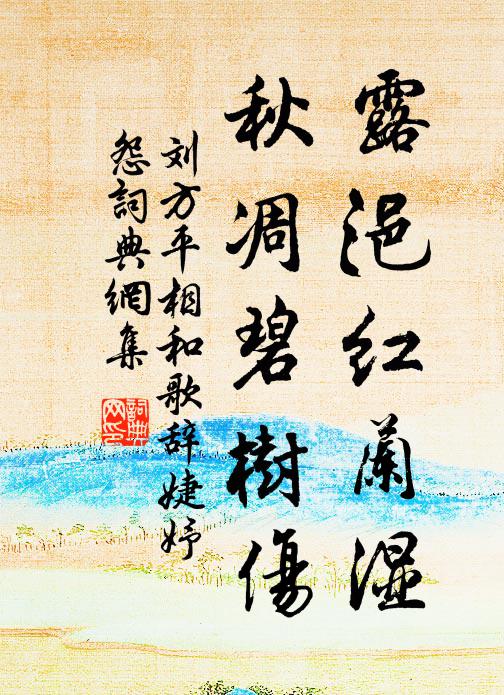 露浥红蘭湿
秋凋碧樹傷
刘方平相和歌辞婕妤
怨詞典網集
詞典網印